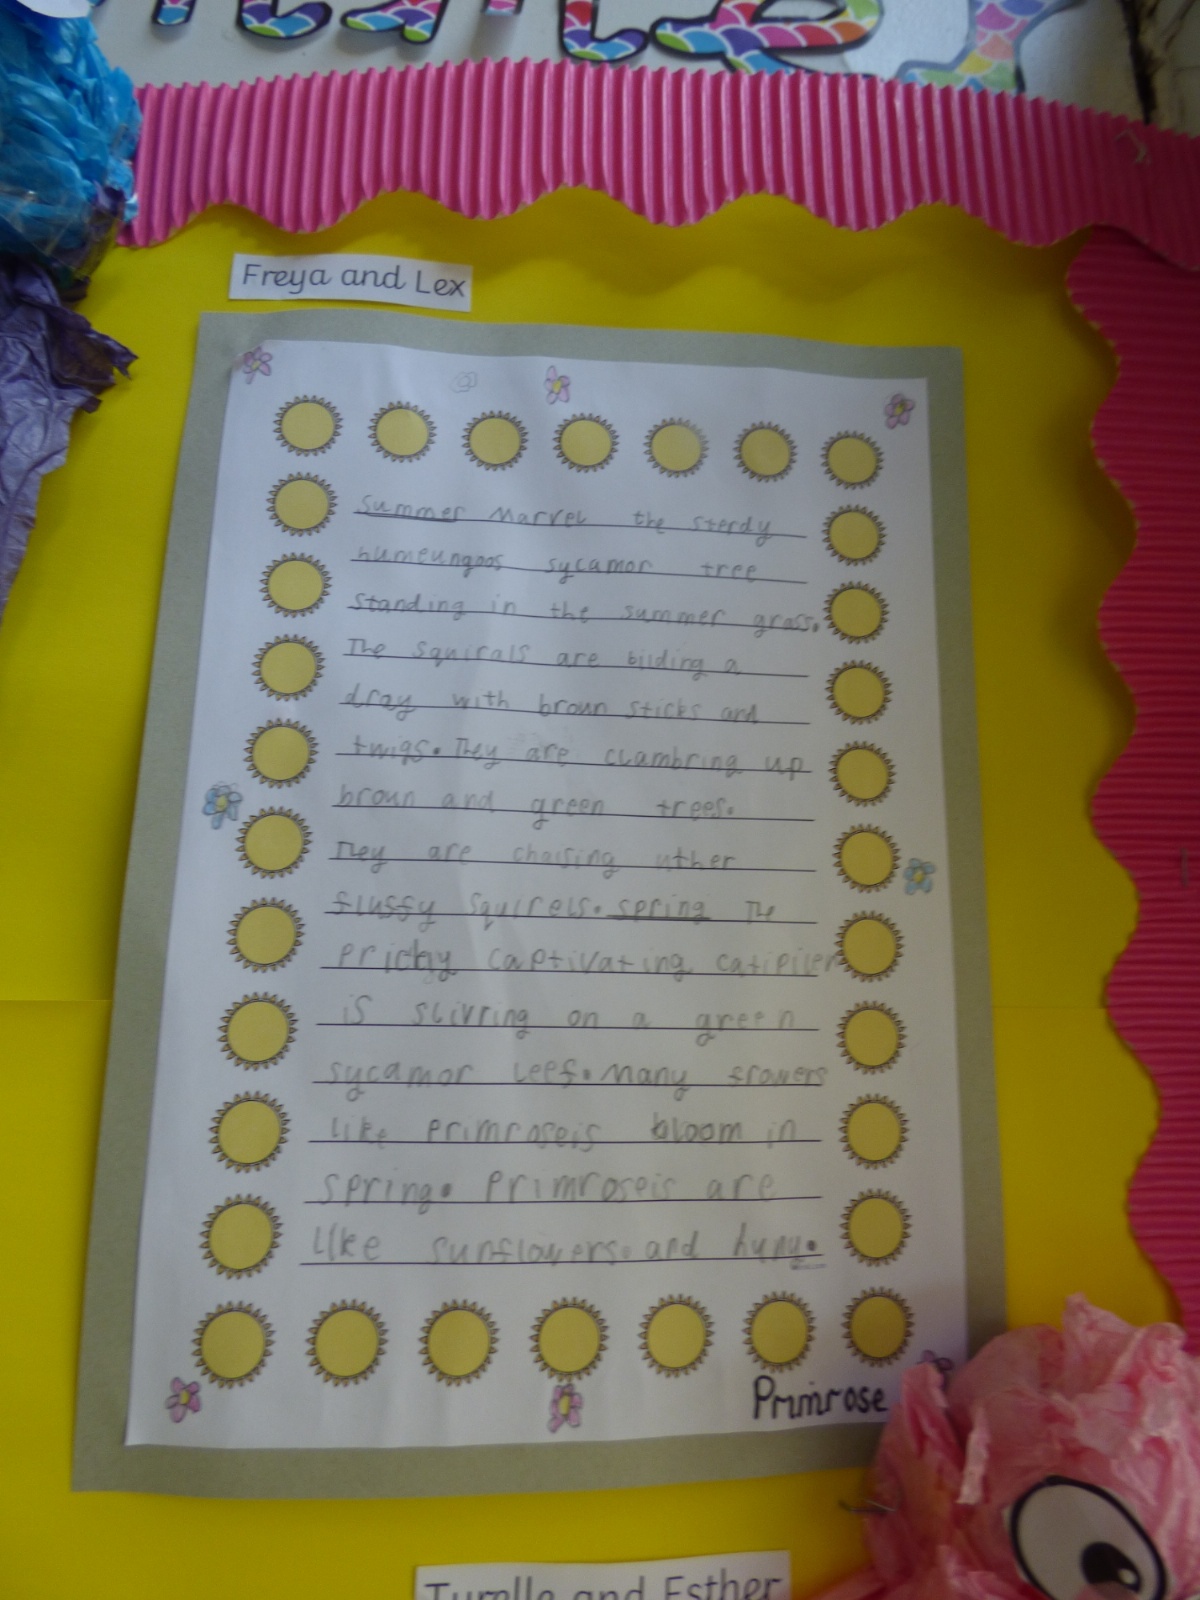 Freya and Lex
Summer Marvel the sterdy
humeungoos sycamor tree
standing in the summer grass.
The squirals are bilding a
dray with broun sticks and
twigs. They are clambring up
broun and green trees.
They are chaising uther
fluffy squirels. spring The
prickly captivating catipiler
is slivring on a green
sycamor leef. Many flowers
like primroseis bloom in
spring. Primroseis are
like sunflowers. and huny.
Primrose
and Esther